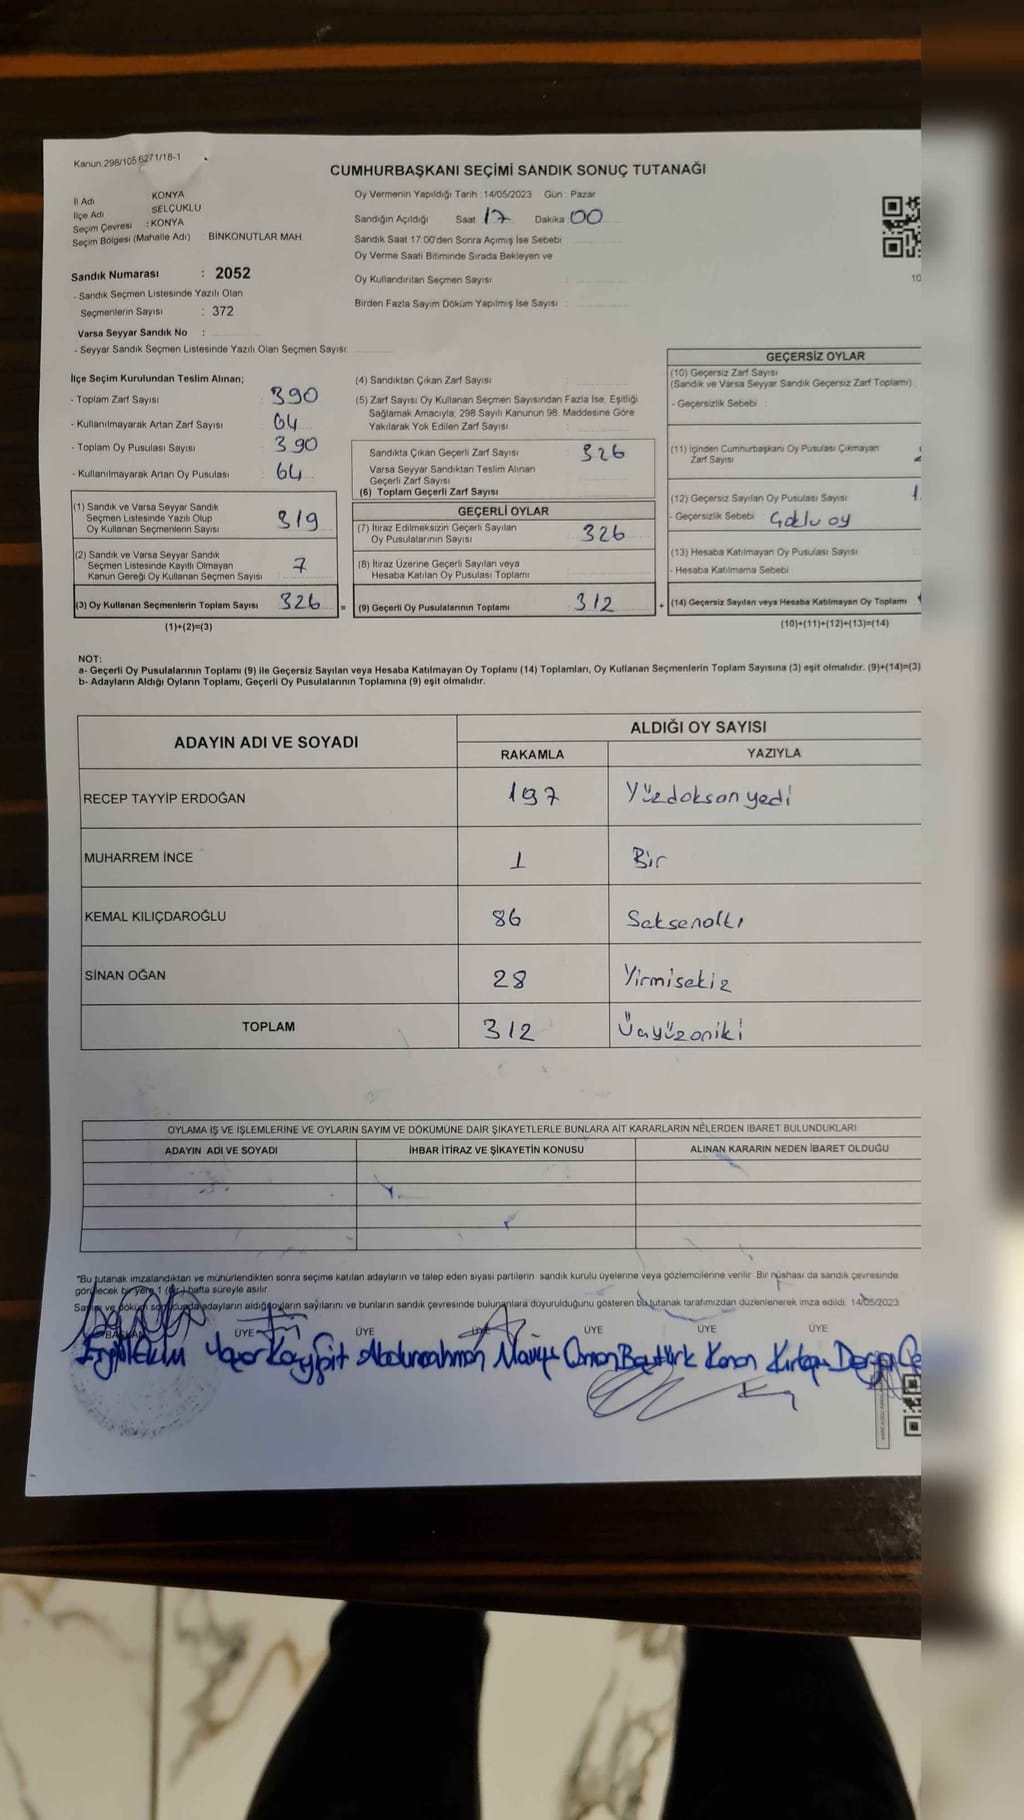 Kanun:298/105 6271/18-1
CUMHURBAŞKANI SEÇİMİ SANDIK SONUÇ TUTANAĞI
İl Adı KONYA
İlçe Adı SELÇUKLU
Seçim Çevresi : KONYA
Seçim Bölgesi (Mahalle Adı) : BİNKONUTLAR MAH.
Sandık Numarası : 2052
- Sandık Seçmen Listesinde Yazılı Olan
Seçmenlerin Sayısı : 372
Varsa Seyyar Sandık No :
- Seyyar Sandık Seçmen Listesinde Yazılı Olan Seçmen Sayısı
Oy Vermenin Yapıldığı Tarih : 14/05/2023 Gün : Pazar
Sandığın Açıldığı Saat 17 Dakika 00
Sandık Saat 17:00'den Sonra Açımış İse Sebebi
Oy Verme Saati Bitiminde Sırada Bekleyen ve
Oy Kullandırılan Seçmen Sayısı
Birden Fazla Sayım Döküm Yapılmış İse Sayısı
10
İlçe Seçim Kurulundan Teslim Alınan;
- Toplam Zarf Sayısı : 390
- Kullanılmayarak Artan Zarf Sayısı : 64
- Toplam Oy Pusulası Sayısı : 390
- Kullanılmayarak Artan Oy Pusulası : 64
(1) Sandık ve Varsa Seyyar Sandık
Seçmen Listesinde Yazılı Olup
Oy Kullanan Seçmenlerin Sayısı 319
(2) Sandık ve Varsa Seyyar Sandık
Seçmen Listesinde Kayıtlı Olmayan
Kanun Gereği Oy Kullanan Seçmen Sayısı 7
(3) Oy Kullanan Seçmenlerin Toplam Sayısı 326 =
(1)+(2)=(3)
(4) Sandıktan Çıkan Zarf Sayısı
(5) Zarf Sayısı Oy Kullanan Seçmen Sayısından Fazla İse, Eşitliği
Sağlamak Amacıyla, 298 Sayılı Kanunun 98. Maddesine Göre
Yakılarak Yok Edilen Zarf Sayısı
Sandıkta Çıkan Geçerli Zarf Sayısı : 326
Varsa Seyyar Sandıktan Teslim Alınan
Geçerli Zarf Sayısı
(6) Toplam Geçerli Zarf Sayısı
GEÇERLİ OYLAR
(7) İtiraz Edilmeksizin Geçerli Sayılan
Oy Pusulalarının Sayısı 326
(8) İtiraz Üzerine Geçerli Sayılan veya
Hesaba Katılan Oy Pusulası Toplamı
(9) Geçerli Oy Pusulalarının Toplamı 312 +
GEÇERSİZ OYLAR
(10) Geçersiz Zarf Sayısı
(Sandık ve Varsa Seyyar Sandık Geçersiz Zarf Toplamı)
- Geçersizlik Sebebi :
(11) İçinden Cumhurbaşkanı Oy Pusulası Çıkmayan
Zarf Sayısı
(12) Geçersiz Sayılan Oy Pusulası Sayısı
- Geçersizlik Sebebi Çoklu oy
(13) Hesaba Katılmayan Oy Pusulası Sayısı
- Hesaba Katılmama Sebebi
(14) Geçersiz Sayılan veya Hesaba Katılmayan Oy Toplamı
(10)+(11)+(12)+(13)=(14)
NOT:
a- Geçerli Oy Pusulalarının Toplamı (9) ile Geçersiz Sayılan veya Hesaba Katılmayan Oy Toplamı (14) Toplamları, Oy Kullanan Seçmenlerin Toplam Sayısına (3) eşit olmalıdır. (9)+(14)=(3)
b- Adayların Aldığı Oyların Toplamı, Geçerli Oy Pusulalarının Toplamına (9) eşit olmalıdır.
ADAYIN ADI VE SOYADI ALDIĞI OY SAYISI
RAKAMLA YAZIYLA
RECEP TAYYİP ERDOĞAN 197 Yüzdoksanyedi
MUHARREM İNCE 1 Bir
KEMAL KILIÇDAROĞLU 86 Seksenaltı
SİNAN OĞAN 28 Yirmisekiz
TOPLAM 312 Üçyüzoniki
OYLAMA İŞ VE İŞLEMLERİNE VE OYLARIN SAYIM VE DÖKÜMÜNE DAİR ŞİKAYETLERLE BUNLARA AİT KARARLARIN NELERDEN İBARET BULUNDUKLARI
ADAYIN ADI VE SOYADI İHBAR İTİRAZ VE ŞİKAYETİN KONUSU ALINAN KARARIN NEDEN İBARET OLDUĞU
*Bu tutanak imzalandıktan ve mühürlendikten sonra seçime katılan adayların ve talep eden siyasi partilerin sandık kurulu üyelerine veya gözlemcilerine verilir. Bir nüshası da sandık çevresinde
görülecek bir yere 1 (Bir) hafta süreyle asılır.
Sayım ve döküm sonucunda adayların aldığı oyların sayılarını ve bunların sandık çevresinde bulunanlara duyurulduğunu gösteren bu tutanak tarafımızdan düzenlenerek imza edildi. 14/05/2023
BAŞKAN ÜYE ÜYE ÜYE ÜYE ÜYE ÜYE
Yaşar Kayyiğit Abdurrahman Osman Baştürk Kenan